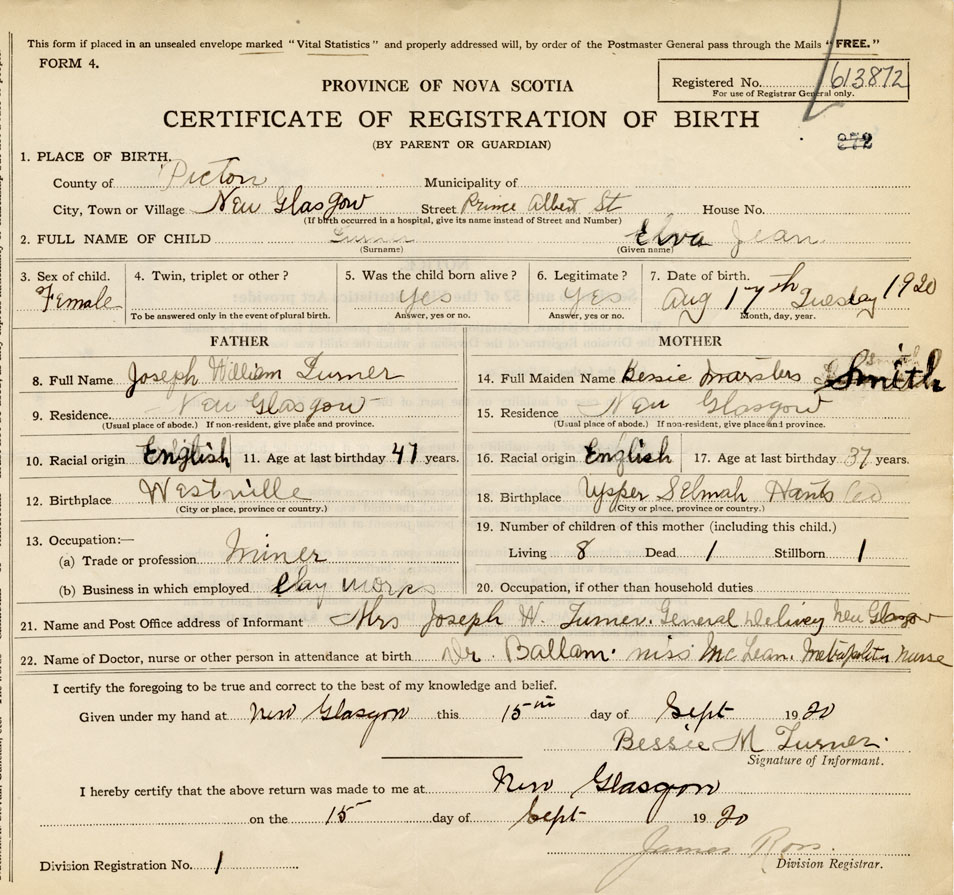 This form if placed in an unsealed envelope marked "Vital Statistics" and properly addressed will, by order of the Postmaster General pass through the Mails "FREE."
FORM 4.
Registered No. 613872
For use of Registrar General only.
PROVINCE OF NOVA SCOTIA
CERTIFICATE OF REGISTRATION OF BIRTH
(BY PARENT OR GUARDIAN)
272
1. PLACE OF BIRTH.
County of Picton Municipality of
City, Town or Village New Glasgow Street Prince Albert St House No.
(If birth occurred in a hospital, give its name instead of Street and Number)
2. FULL NAME OF CHILD Turner Elva Jean
(Surname) (Given name)
3. Sex of child. 4. Twin, triplet or other? 5. Was the child born alive? 6. Legitimate? 7. Date of birth.
Female Yes Yes Aug 17th Tuesday 1920
To be answered only in the event of plural birth. Answer, yes or no. Answer, yes or no. Month, day, year.
FATHER MOTHER
8. Full Name Joseph William Turner 14. Full Maiden Name Bessie Marsters Smith
9. Residence. New Glasgow 15. Residence New Glasgow
(Usual place of abode.) If non-resident, give place and province. (Usual place of abode.) If non-resident, give place and province.
10. Racial origin English 11. Age at last birthday 47 years. 16. Racial origin English 17. Age at last birthday 37 years.
12. Birthplace Westville 18. Birthplace Upper Selmah Hants Co
(City or place, province or country.) (City or place, province or country.)
19. Number of children of this mother (including this child.)
13. Occupation:—
(a) Trade or profession Miner Living 8 Dead 1 Stillborn 1
(b) Business in which employed Clay works 20. Occupation, if other than household duties
21. Name and Post Office address of Informant Mrs Joseph W. Turner. General Delivey New Glasgow
22. Name of Doctor, nurse or other person in attendance at birth Dr. Ballam. miss McLean. Nurse
I certify the foregoing to be true and correct to the best of my knowledge and belief.
Given under my hand at New Glasgow this 15th day of Sept 1920
Bessie M Turner.
Signature of Informant.
I hereby certify that the above return was made to me at New Glasgow
on the 15 day of Sept 1920
James Ross.
Division Registration No. 1 Division Registrar.